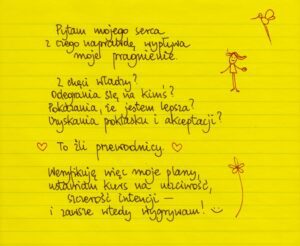 Pytam mojego serca
z czego naprawdę wypływa
moje pragnienie.
Z chęci władzy?
Odegrania się na kimś?
Pokazania, że jestem lepsza?
Uzyskania poklasku i akceptacji?
To źli przewodnicy.
Weryfikuję więc moje plany,
ustawiam kurs na uczciwość,
szczerość intencji –
i zawsze wtedy wygrywam!